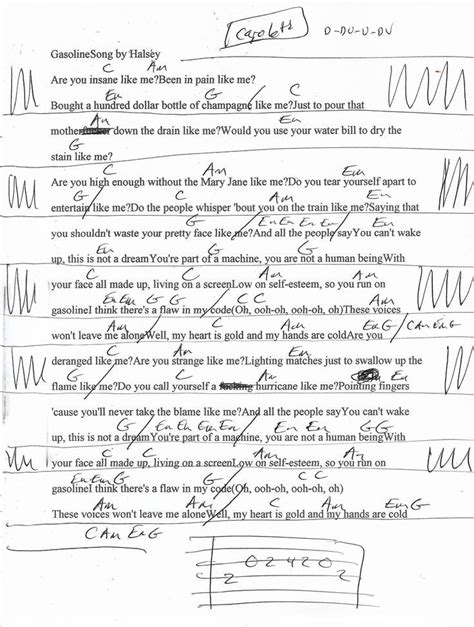 Capo 6th D-DU-U-DU
GasolineSong by Halsey
C Am
Are you insane like me?Been in pain like me?
Em G
Bought a hundred dollar bottle of champagne like me?Just to pour that
Am Em
mother down the drain like me?Would you use your water bill to dry the
G
stain like me?
C Am Em
Are you high enough without the Mary Jane like me?Do you tear yourself apart to
G C Am
entertain like me?Do the people whisper 'bout you on the train like me?Saying that
Em G / Em Em Em Em
you shouldn't waste your pretty face like me?And all the people sayYou can't wake
Em G Em Em G G
up, this is not a dreamYou're part of a machine, you are not a human beingWith
C C Am Am
your face all made up, living on a screenLow on self-esteem, so you run on
Em Em G G C C
gasolineI think there's a flaw in my code(Oh, ooh-oh, ooh-oh, oh)These voices
Am Am Em G / C Am Em G
won't leave me aloneWell, my heart is gold and my hands are coldAre you
C Am Em
deranged like me?Are you strange like me?Lighting matches just to swallow up the
G C Am Em
flame like me?Do you call yourself a fucking hurricane like me?Pointing fingers
G
'cause you'll never take the blame like me?And all the people sayYou can't wake
G / Em Em Em Em / Em Em G G
up, this is not a dreamYou're part of a machine, you are not a human beingWith
C C Am Am
your face all made up, living on a screenLow on self-esteem, so you run on
Em Em G G C C
gasolineI think there's a flaw in my code(Oh, ooh-oh, ooh-oh, oh)
Am Am Em G
These voices won't leave me aloneWell, my heart is gold and my hands are cold
C Am Em G
02420
2 2